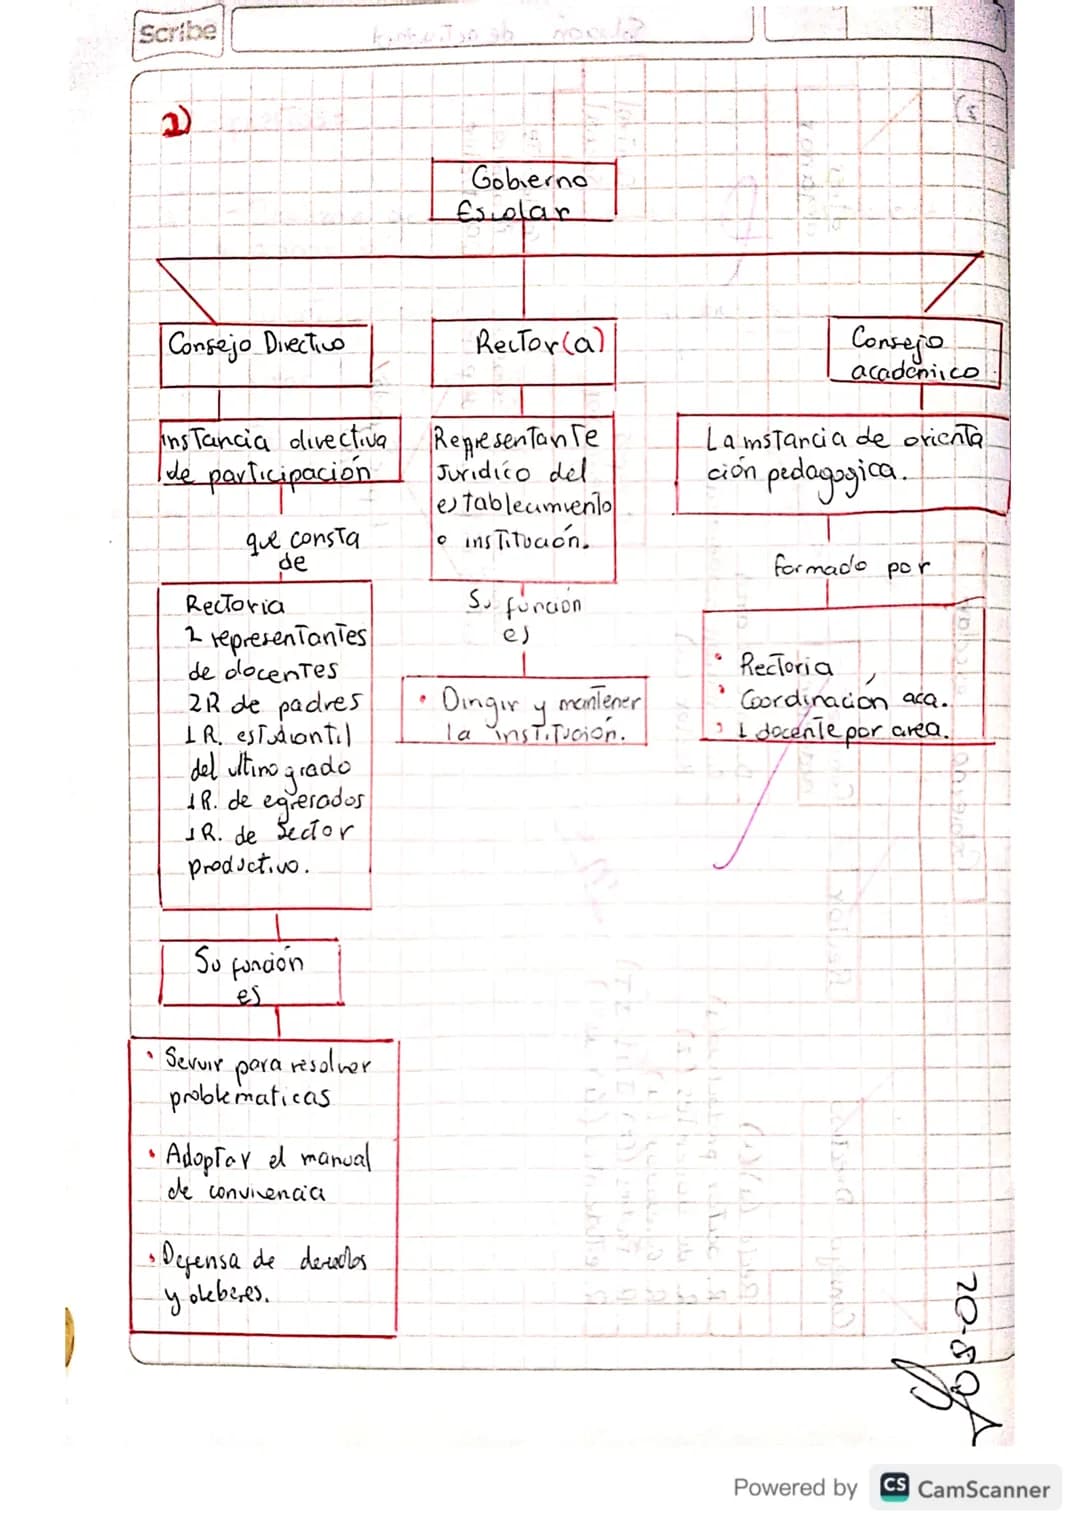 Scribe
2)
Gobierno
Escolar
Consejo Directivo
instancia directiva
de participación
que consta
de
Rectoria
2 representantes
de docentes
2R de padres
1 R. estudiantil
del ultimo grado
1R. de egresados
1R. de Sector
productivo.
Su función
es
• Servir para resolver
problematicas
• Adoptar el manual
de convivencia
• Defensa de derechos
y deberes.
Rector(a)
Representante
Juridico del
establecimiento
o institución.
Su función
es
• Dirigir y mantener
la institución.
Consejo
academico
La instancia de orienta
ción pedagogica.
formado por
• Rectoria
• Coordinación aca.
• 1 docente por area.
Powered by CS CamScanner